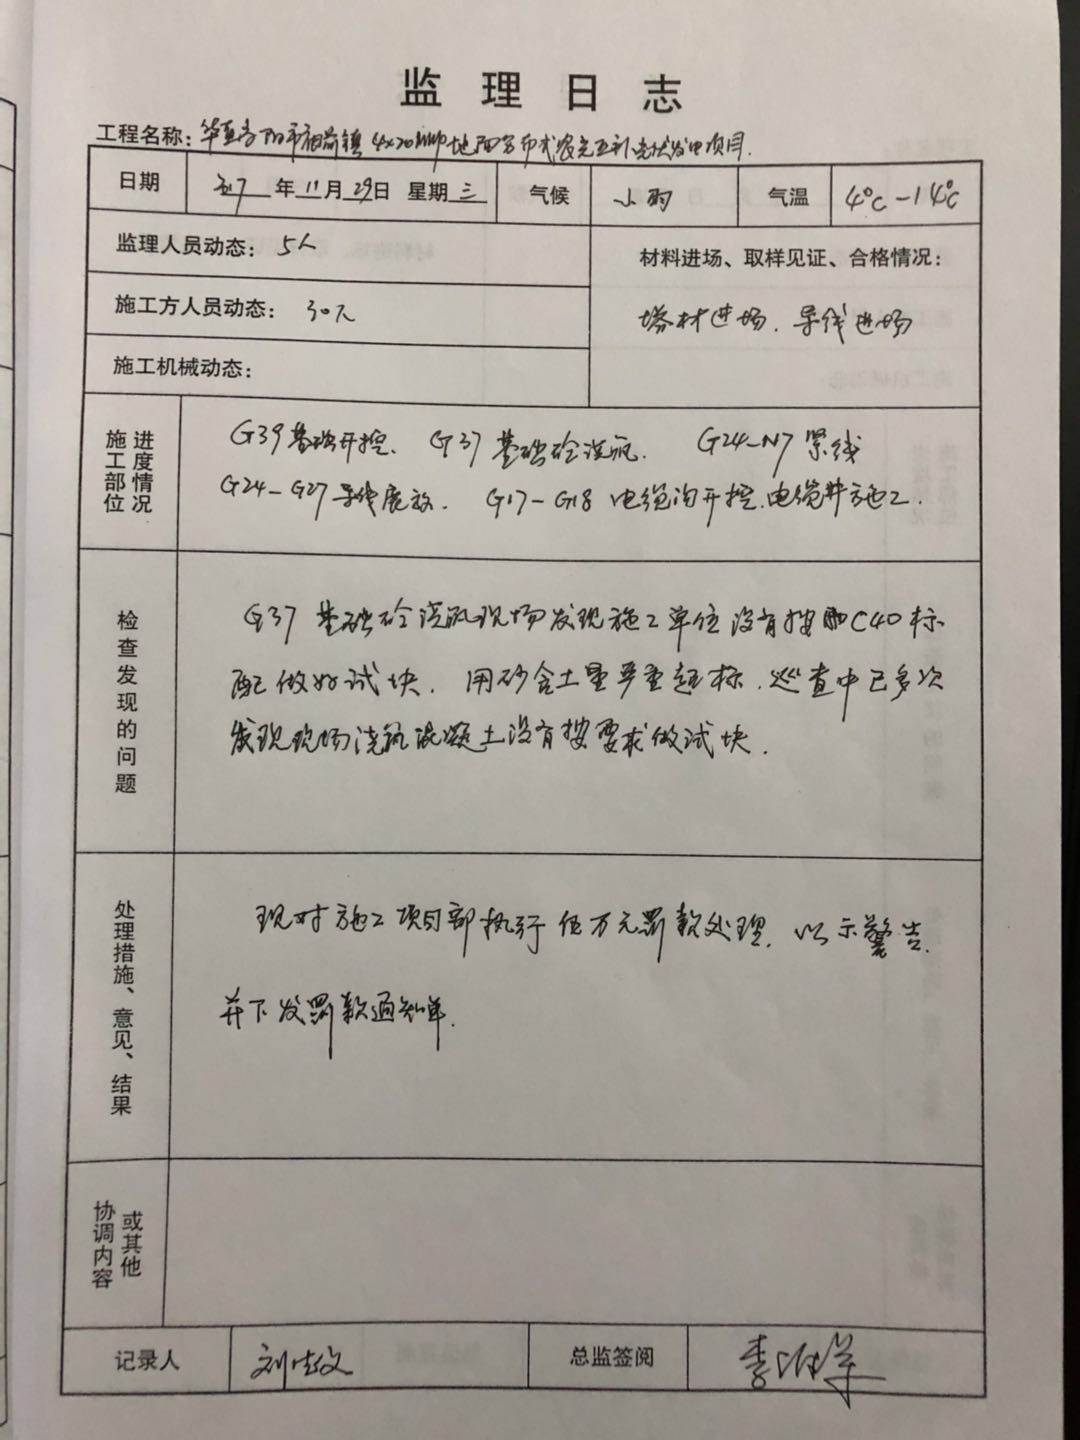 监理日志
工程名称: 4×20MWP地面分布式农光互补光伏发电项目.
日期 2017年11月29日 星期三 气候 小雨 气温 4℃-14℃
监理人员动态: 5人
材料进场、取样见证、合格情况:
施工方人员动态: 30人
塔材进场. 导线进场
施工机械动态:
施工部位 进度情况
G39基础开挖. G37基础砼浇筑. G24-N7紧线
G24-G27导线展放. G17-G18电缆沟开挖.电缆井施工.
检查发现的问题
G37基础砼浇筑现场发现施工单位没有按C40标
配做好试块. 用砂含土量严重超标. 巡查中已多次
发现现场浇筑混凝土没有按要求做试块.
处理措施、意见、结果
现对施工项目部执行伍万元罚款处理. 以示警告.
并下发罚款通知单.
协调内容 或其他
记录人 刘 总监签阅 李